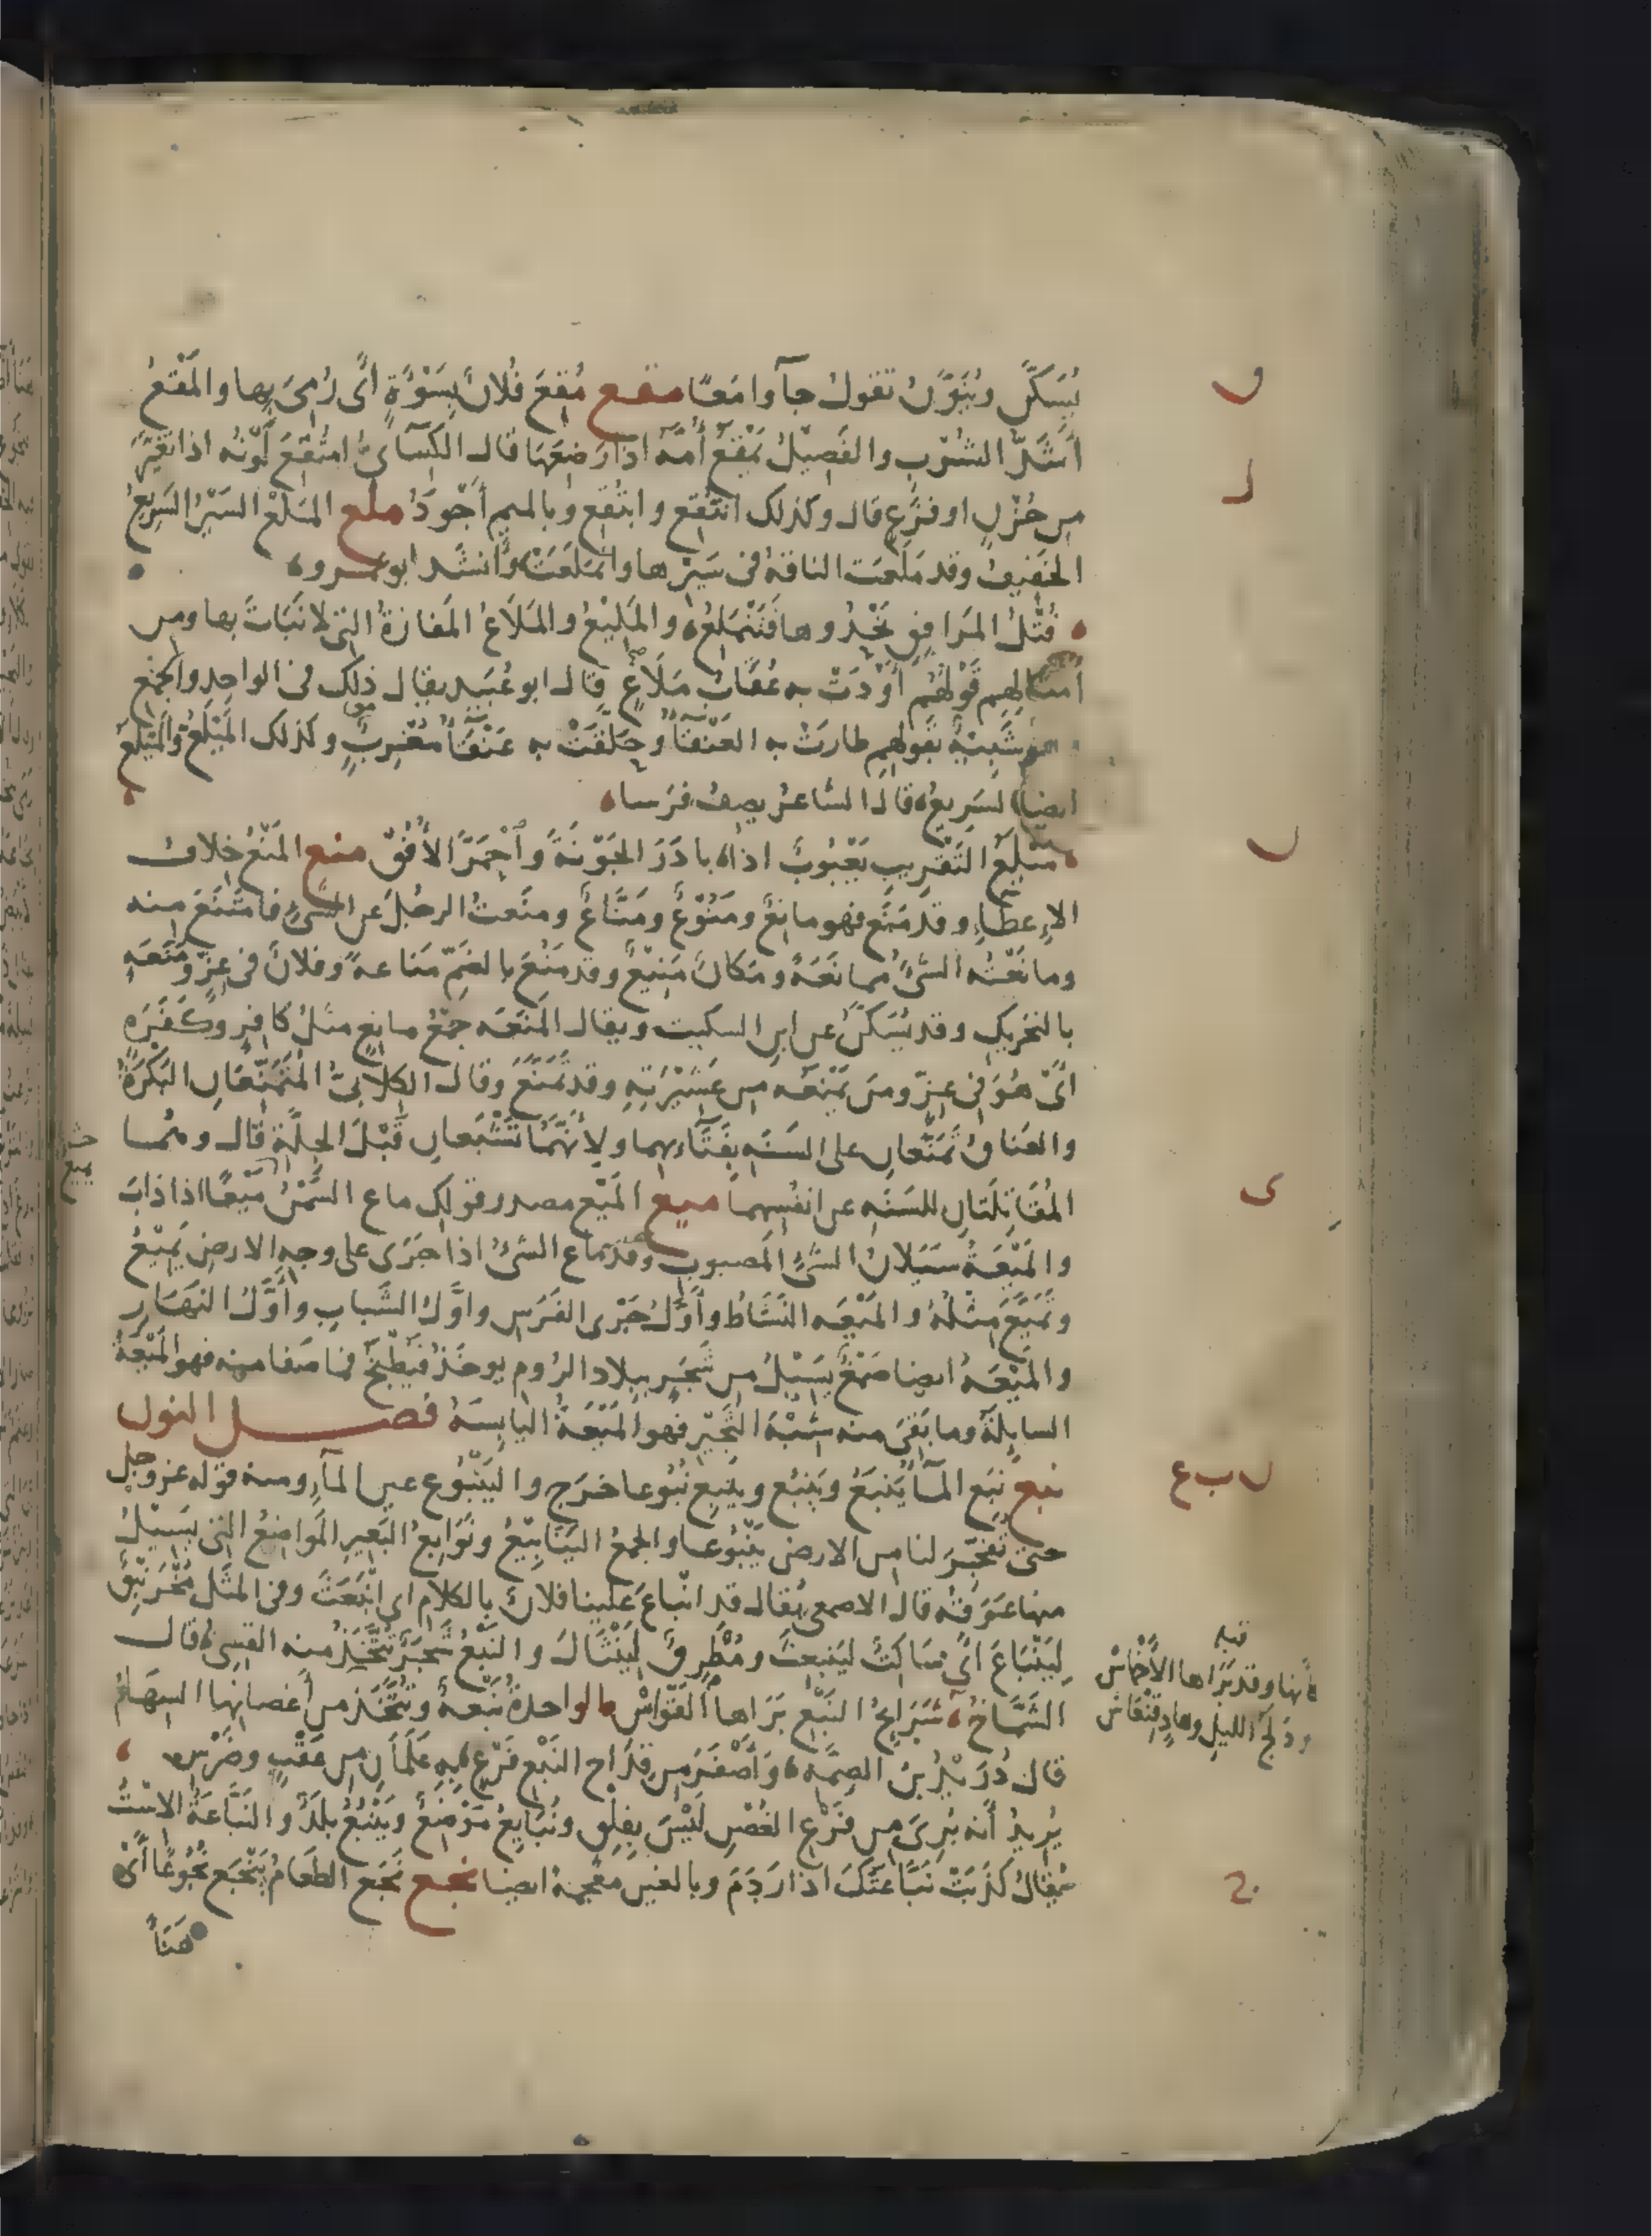 يُسَكَّن ويُنَوَّن تقول جآوا معًا مقع مُقِعَ فلانٌ بِسَوْءَةٍ أَى رُمِىَ بها والمَقْعُ
أَشَدُّ الشُرْبِ والفَصِيْلُ يَمْقَعُ أُمَّهُ اذا رَضِعَهَا قال الكِسَآئىُّ امتُقِعَ لَوْنُه اذا تَغَيَّرَ
من حُزْنٍ او فَزَعٍ قال وكذلك انتُقِع وابتُقِع وبالميم أَجْوَدُ ملع المَلْعُ السَيْرُ السَرِيعُ
الخفيفُ وقد مَلَعَت الناقةُ فى سَيْرِها وامتَلَعَتْ وأَنشد ابو عمرو
فُتْلُ المَرافِقِ يَحْدُوها فَتَنْمَلِعُ والمَلِيْعُ والمَلَاعُ المَفَازةُ التى لا نَبَاتَ بها ومن
أَمثالِهِم قَوْلُهُم أَوْدَتْ به عُقَابُ مَلَاعٍ قال ابو عُبَيد يقال ذلك فى الواحد والجمع
هو شَبِيهٌ بقولهم طارت به العَنْقَآءُ وحَلَّقَتْ به عَنْقَآءُ مُغْرِبٌ وكذلك المَيْلَعُ والمَيْلَعُ
ايضا السَرِيعُ قال الشاعر يصف فرسا
مَيْلَعُ التَقْرِيبِ يَعْبُوبٌ اذا بادَرَ الجَوْنَةَ وٱحْمَرَّ الأُفُقْ منع المَنْعُ خِلافُ
الإِعطاءِ وقد مَنَع فهو مانِعٌ ومَنُوْعٌ ومَنَّاعٌ ومنَعتُ الرجُلَ عن الشىءِ فامتَنَعَ منه
ومانَعْتُه الشىءَ ممانَعَةً ومكانٌ مَنِيْعٌ وقد مَنُعَ بالضَمِّ مَنَاعةً وفلانٌ فى عِزٍّ ومَنَعَةٍ
بالتحريكِ وقد يُسَكَّنُ عن ابن السكيت ويقال المَنَعَه جَمْعُ مانِعٍ مثلُ كافِرٍ وكَفَرَةٍ
أَىْ هُوَ فى عِزٍّ ومَن يَمْنَعُه من عَشِيْرَتِهِ وقد تَمَنَّعَ وقال الكِلَابِىُّ المُتَمَنِّعَانِ البَكْرَةُ
والعَنَاقُ تَمَنَّعانِ على السَنَةِ بِفَتَآءِهِما ولِأَنَّهُمَا تَشْبَعانِ قَبْلَ الجِلَّةِ قال وهُما
المُقَاتِلَتَانِ للسَنَةِ عن انفُسِهِما ميع المَيْع مصدر قولك ماع السَّمْنُ مَيْعًا اذا ذابَ
والمَيْعَةُ سَيَلانُ الشىءِ المَصبوبِ وقد ماع الشىءُ اذا جَرَى على وجهِ الارض يَمِيْعُ
وتَمَيَّعَ مِثْلُهُ والمَيْعَه النَشَاطُ وأَوَّلُ جَرْىِ الفَرَسِ واوَّلُ الشَّبابِ وأَوَّلُ النَهَارِ
والمَيْعَهُ ايضا صَمْغٌ يَسِيْلُ من شَجَرٍ ببلاد الرُومِ يوخَذُ فيُطْبَخُ فما صَفَا منه فهو المَيْعَةُ
السايِلَةُ وما بَقِىَ منه شِبْهَ الثَّجِيْرِ فهو المَيْعَةُ اليابِسَةُ فصـــل النون
نبع نَبَع المآءُ يَنبَعُ ويَنبُع ويَنبِع نُبُوعا خرَج واليَنْبُوع عين المآءِ ومنه قوله عز وجل
حتى تُفَجِّرَ لنا من الارض يَنْبُوعا والجمعُ اليَنَابِيْعُ ونَوَابِعُ البَعِيرِ المَواضِعُ التى يَسِيْلُ
منها عَرَقُهُ قال الاصمعى يُقال قد انْباعَ عَلينا فلانٌ بالكلام اى انْبَعَثَ وفى المثَل مُخْرَنْبِقٌ
لِيَنْبَاعَ اى سَاكِتٌ ليَنبعِثَ ومُطْرِقٌ لِيَنْثَالَ والنَبْعُ شَجَرٌ تُتَّخَذُ منه القِسِىُّ قال
الشَمَّاخُ شَرَايِحُ النَبْعِ بَرَاها القَوَّاسْ الواحدةُ نَبْعةٌ وتُتَّخَذ من أَغصانِها السِهَامُ
قال دُرَيْدُ بنُ الصِمَّةِ وأَصْفَرَ من قِدَاحِ النَبْعِ فَرْعٍ به عَلَمَانِ من عَقْبٍ وضَرْسِ
يُرِيدُ أَنه بُرِىَ من فَرْعِ الغُصْنِ لَيْسَ بِفِلْقٍ ونُبَايِعُ مَوْضِعٌ ويَنْبُعُ بلَدٌ والنَبَّاعَةُ الاسْتُ
يُقال كَذَبَتْ نَبَّاعَتُكَ اذا رَدَمَ وبالغين معجمةً ايضا نجع نَجَع الطَعَامُ يَنْجَع نُجُوعًا أَىْ
هَنَأَ
ق
ل
ن
ى
ن ب ع
ج
كأنها وقد بَرَاها الأَخْماسْ
ودَلَجُ الليلِ وهادٍ قَيَّاسْ